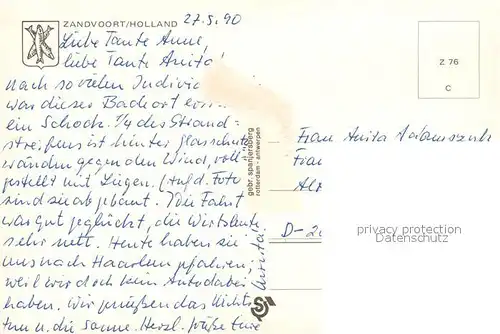 ZANDVOORT/HOLLAND 27.5.90
Liebe Tante Anne,
liebe Tante Anita!
Nach so vielen Indivi
war dieser Badeort
ein Schock. 3/4 des Strand=
streifens ist hinter Glasschutz
wänden gegen den Wind, voll=
gestellt mit Liegen. (Auf d. Foto
sind sie abgebaut. Die Fahrt
war gut geglückt, die Wirtsleute
sehr nett. Heute haben sie
uns nach Haarlem gefahren,
weil wir doch kein Auto dabei
haben. Wir genießen das Nichts
tun u. die Sonne. Herzl. Grüße Eure
Christa
gebr. spanjersberg
rotterdam - antwerpen
Z 76
C
Frau Anita
Frau
D-2
privat-photo.com
Datenschutz